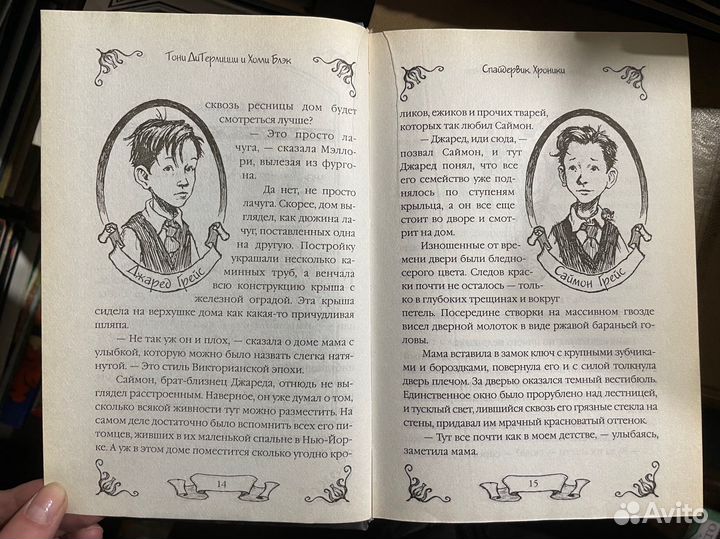 Тони ДиТерлицци и Холли Блэк
сквозь ресницы дом будет
смотреться лучше?
— Это просто ла-
чуга, — сказала Мэлло-
ри, вылезая из фурго-
на.
Да нет, не просто
лачуга. Скорее, дом вы-
глядел, как дюжина ла-
чуг, поставленных одна
на другую. Постройку
украшали несколько ка-
минных труб, а венчала
всю конструкцию крыша с
железной оградой. Эта крыша
сидела на верхушке дома как какая-то причудливая
шляпа.
— Не так уж он и плох, — сказала о доме мама с
улыбкой, которую можно было назвать слегка натя-
нутой. — Это стиль Викторианской эпохи.
Саймон, брат-близнец Джареда, отнюдь не вы-
глядел расстроенным. Наверное, он уже думал о том,
сколько всякой живности тут можно разместить. На
самом деле достаточно было вспомнить всех его пи-
томцев, живших в их маленькой спальне в Нью-Йор-
ке. А уж в этом доме поместится сколько угодно кро-
Джаред Грейс
14
Спайдервик Хроники
ликов, ежиков и прочих тварей,
которых так любил Саймон.
— Джаред, иди сюда, —
позвал Саймон, и тут
Джаред понял, что все
его семейство уже под-
нялось по ступеням
крыльца, а он все еще
стоит во дворе и смот-
рит на дом.
Изношенные от вре-
мени двери были бледно-
серого цвета. Следов крас-
ки почти не осталось — толь-
ко в глубоких трещинах и вокруг
петель. Посередине створки на массивном гвозде
висел дверной молоток в виде ржавой бараньей го-
ловы.
Мама вставила в замок ключ с крупными зубчика-
ми и бороздками, повернула его и с силой толкнула
дверь плечом. За дверью оказался темный вестибюль.
Единственное окно было прорублено над лестницей,
и тусклый свет, лившийся сквозь его грязные стекла на
стены, придавал им мрачный красноватый оттенок.
— Тут все почти как в моем детстве, — улыбаясь,
заметила мама.
Саймон Грейс
15
Avito